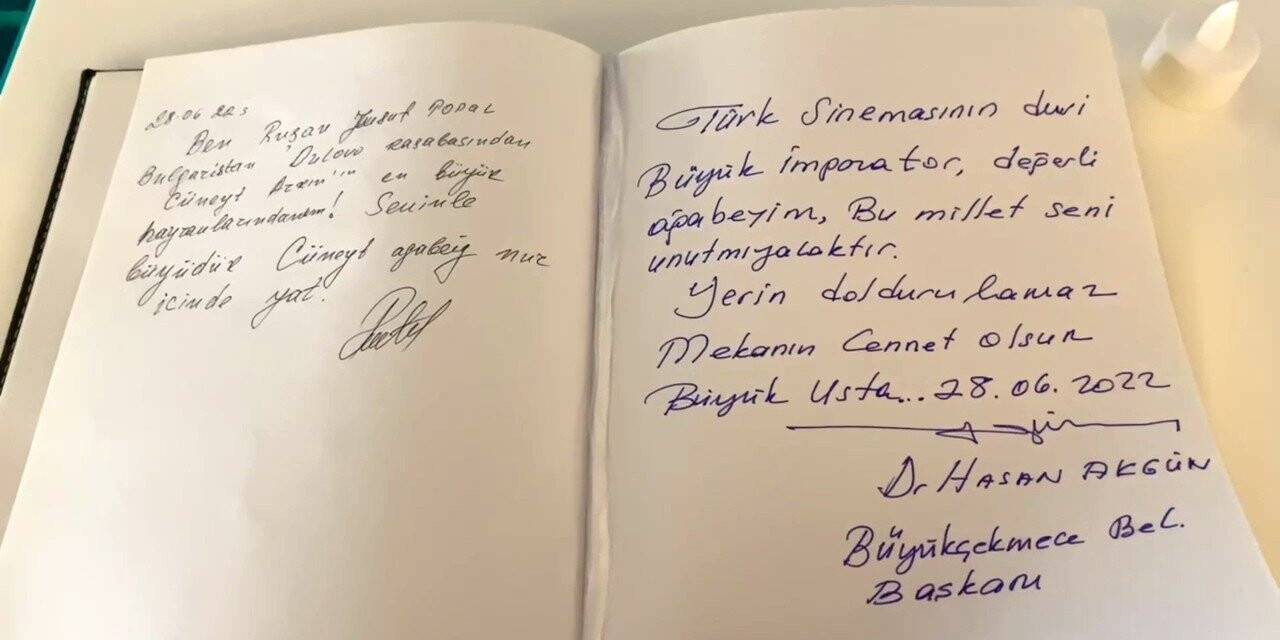 28.06 22 г
Ben Ruşan Yusuf TOPAL
Bulgaristan "Dulovo kasabasından
Cüneyt Arkın'ın en büyük
hayranlarındanım! Seninle
büyüdük Cüneyt agabeiy nur
içinde yat.
Türk Sinemasının devi
Büyük İmporator, değerli
ağabeyim, Bu millet seni
unutmıyacaktır.
Yerin doldurulamaz
Mekanın Cennet olsun
Büyük Usta... 28.06.2022
Dr HASAN AKGÜN
Büyükçekmece Bel.
Başkanı